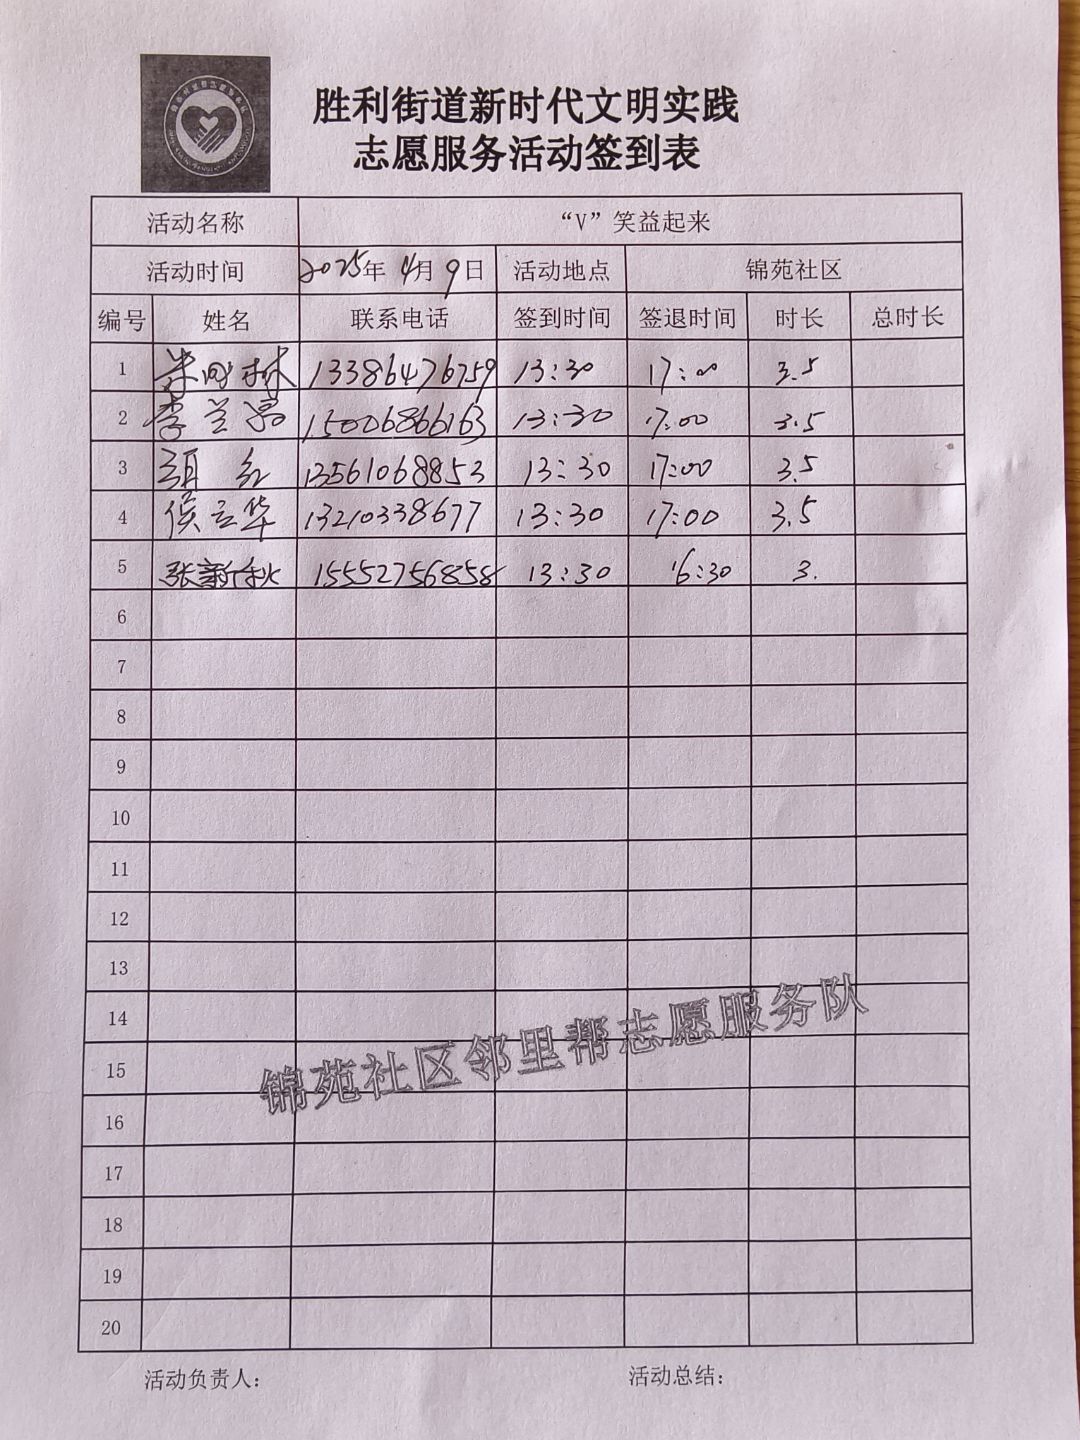 胜利街道新时代文明实践
志愿服务活动签到表
活动名称 “V”笑益起来
活动时间 2025年 4月 9日 活动地点 锦苑社区
编号 姓名 联系电话 签到时间 签退时间 时长 总时长
1 林 13386476759 13:30 17:00 3.5
2 李兰 15006866163 13:30 17:00 3.5
3 红 13561068853 13:30 17:00 3.5
4 侯立华 13210338677 13:30 17:00 3.5
5 张新秋 15552756858 13:30 16:30 3.
6
7
8
9
10
11
12
13
14
15
16
17
18
19
20
锦苑社区邻里帮志愿服务队
活动负责人： 活动总结：